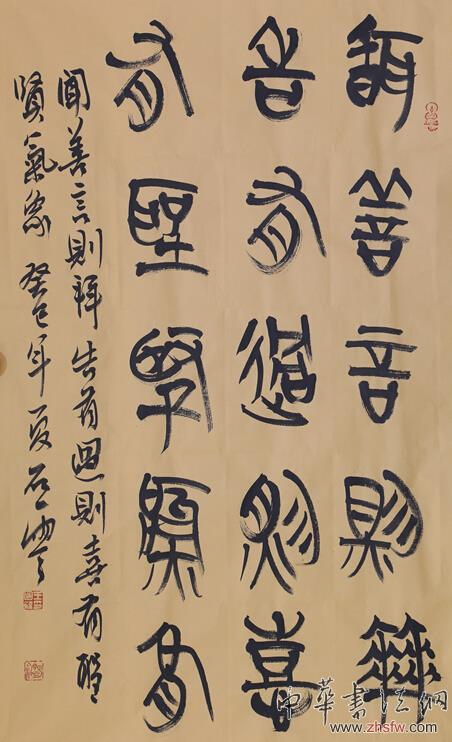 聞善言則拜
告有過則喜
有聖賢氣象
聞善言則拜告有過則喜有聖
賢氣象 癸巳年夏石
中華書法網
www.zhsfw.com